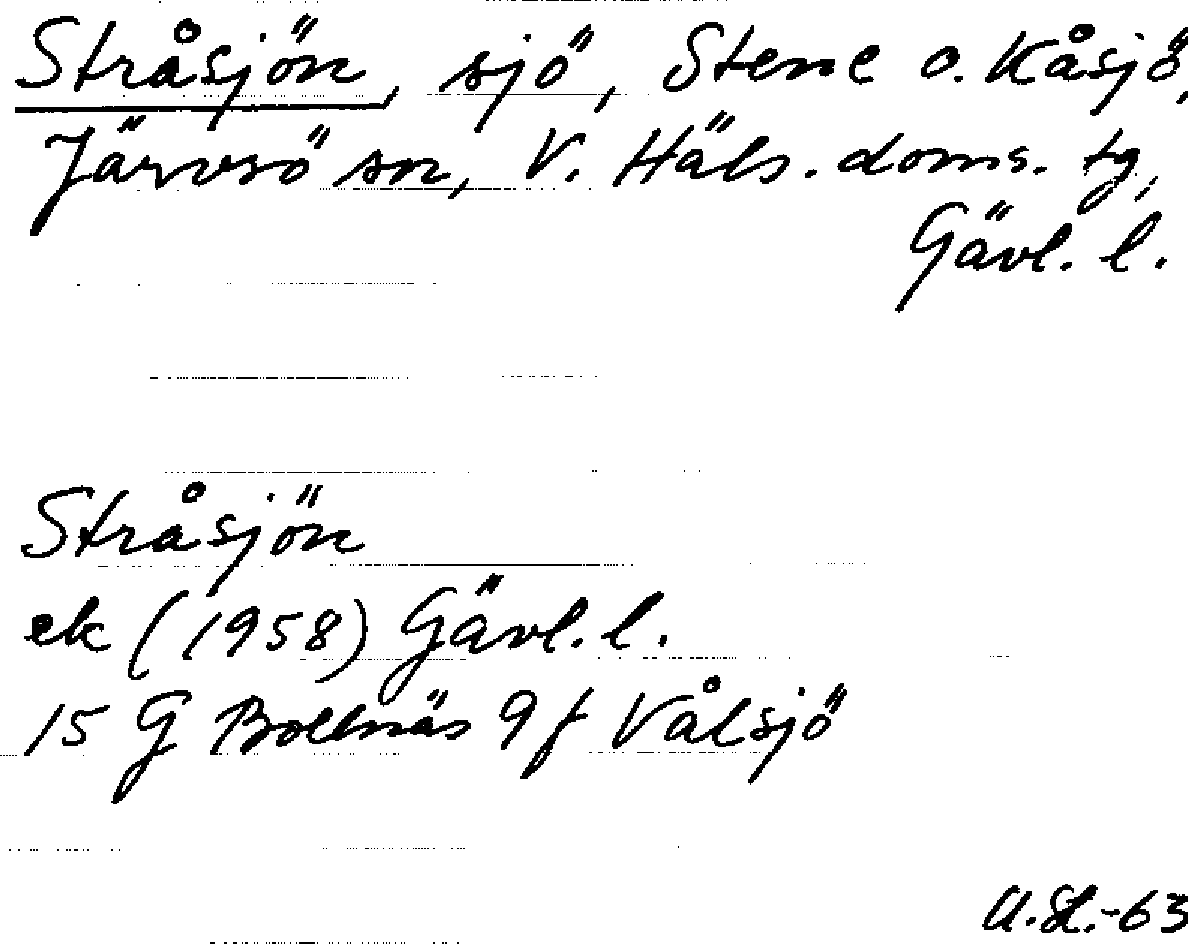 Stråsjön, sjö, Stene o. Kåsjö,
Järvsö sn, V. Häls. doms. tg,
Gävl. l.
Stråsjön
ek (1958) Gävl. l.
15 G Bollnäs 9f Vålsjö
U.St.-63